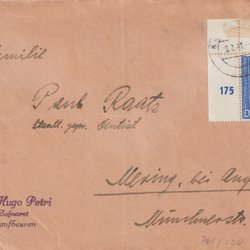 Familie
Paul Raatz
Staatl. gepr. Dentist
175
Mering, bei Aug
Münchnerstr
Hugo Petri
Zahnarzt
aufbeuren